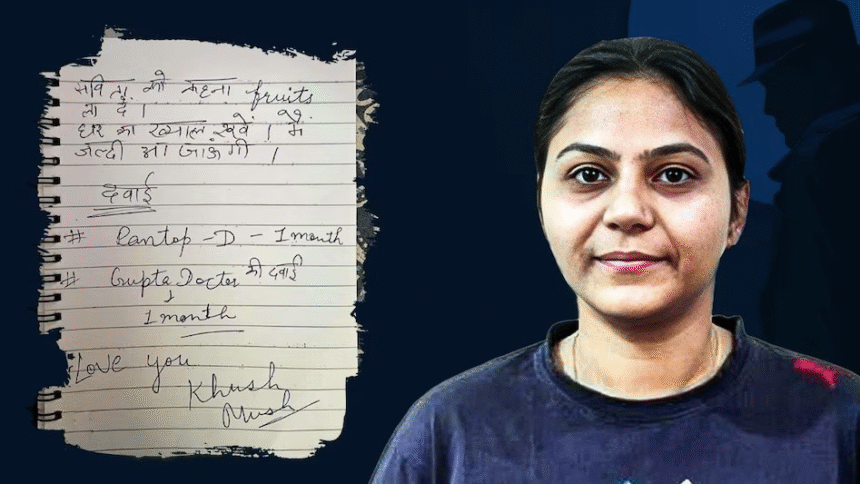 सविता को कहना fruits
ला दे ।
घर का ख्याल रखें । मैं
जल्दी आ जाऊंगी ।
दवाई
# Pantop-D - 1 month
# Gupta Doctor की दवाई
1 month
Love you
Khush
Mush